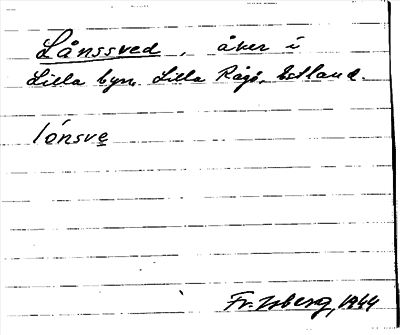 Lånssved, åker i
Lilla byn, Lilla Rågö, Estland.
lónsve
Fr. Isberg, 1944